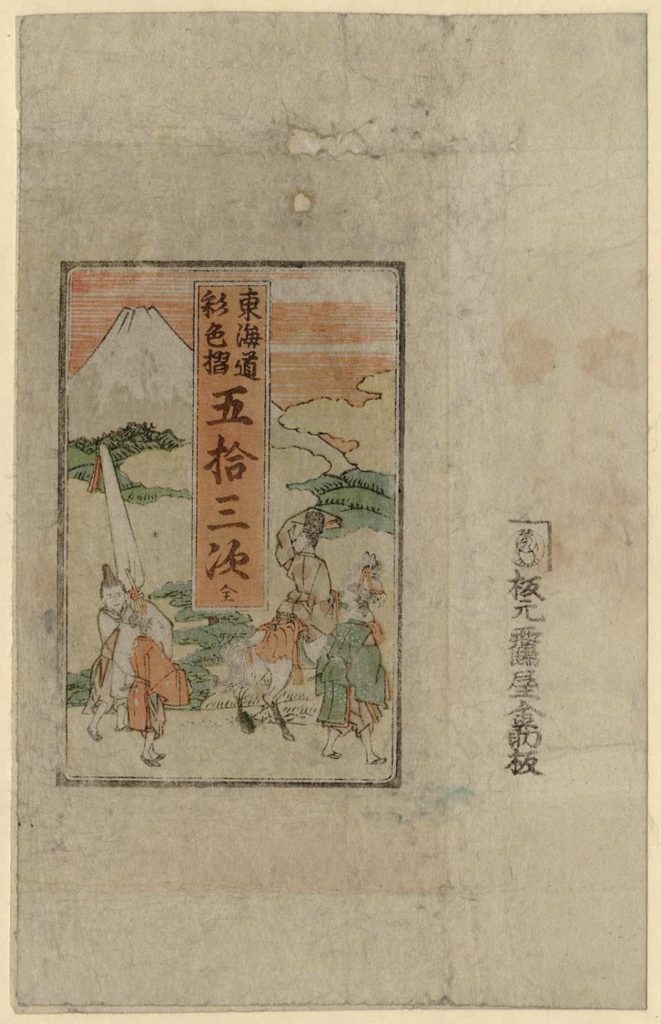 東海道
彩色摺
五拾三次
全
板元靏屋金助板